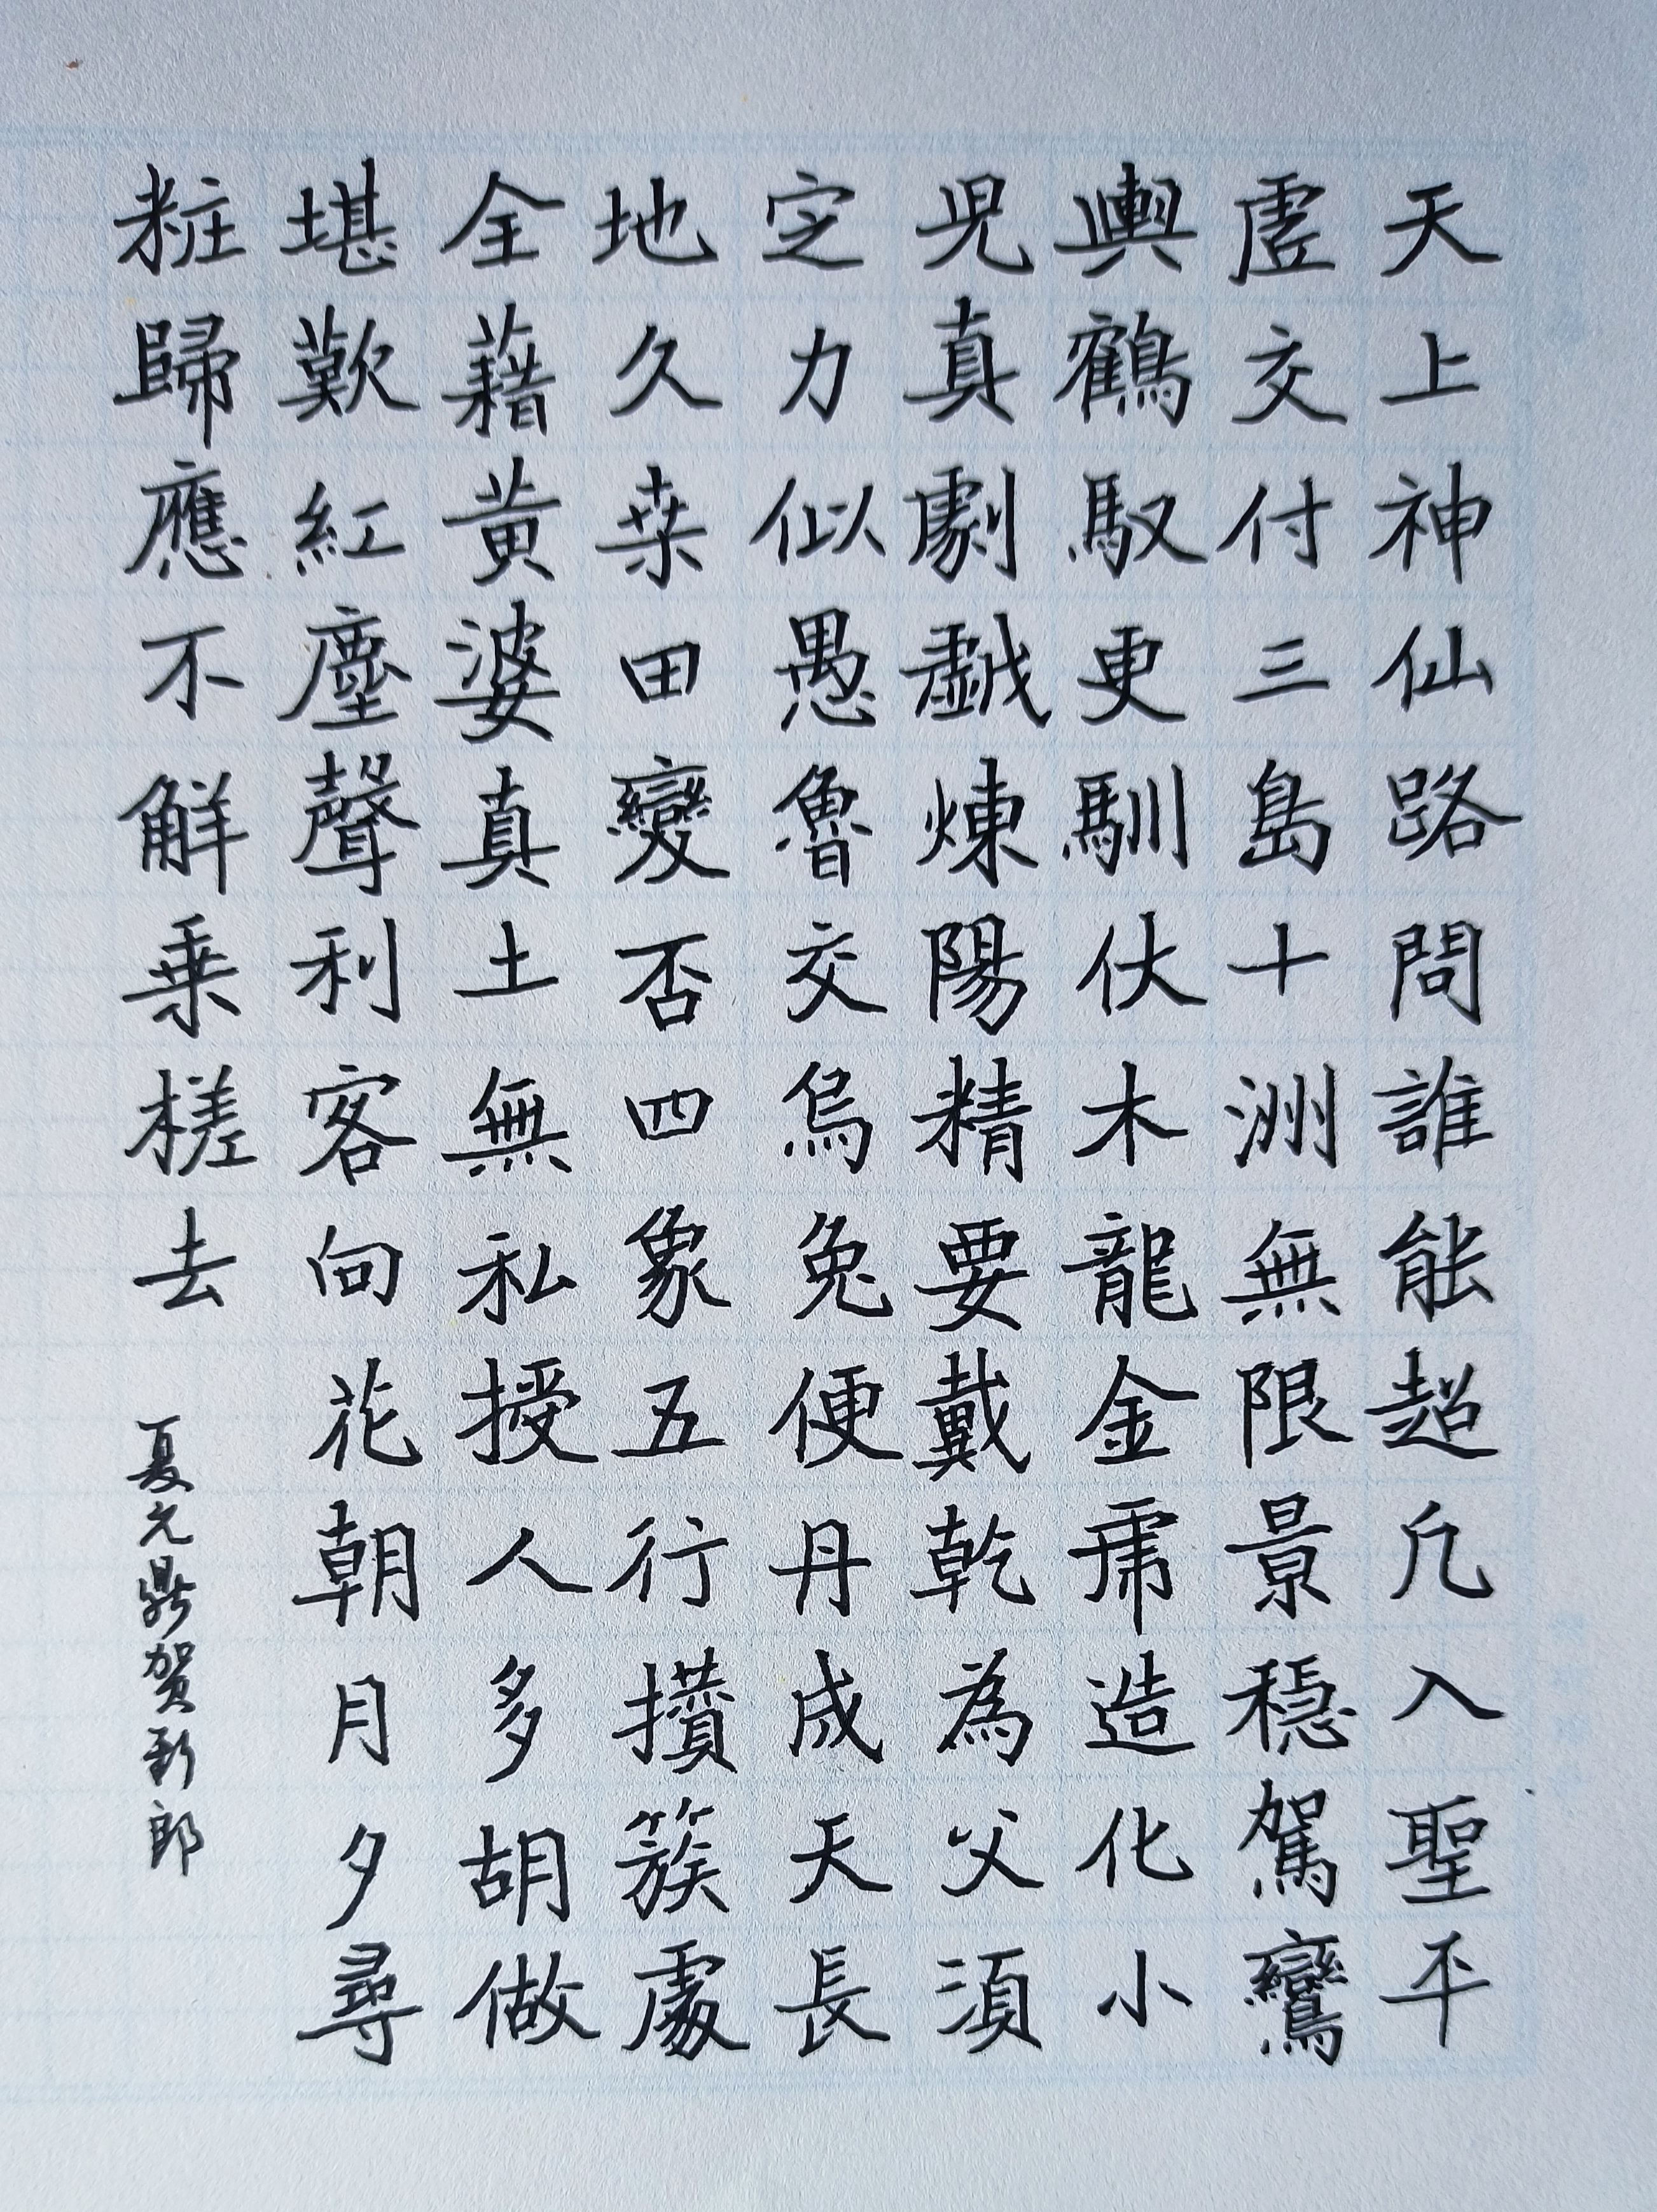 天上神仙路問誰能超凢入聖平
虛交付三島十洲無限景穩駕鸞
輿鶴馭更馴伏木龍金虎造化小
児真劇戯煉陽精要戴乾為父須
定力似愚魯交烏兔便丹成天長
地久桒田變否四象五行攢簇處
全藉黄婆真土無私授人多胡做
堪歎紅塵聲利客向花朝月夕尋
粧歸應不觧乗槎去
夏元鼎賀新郎